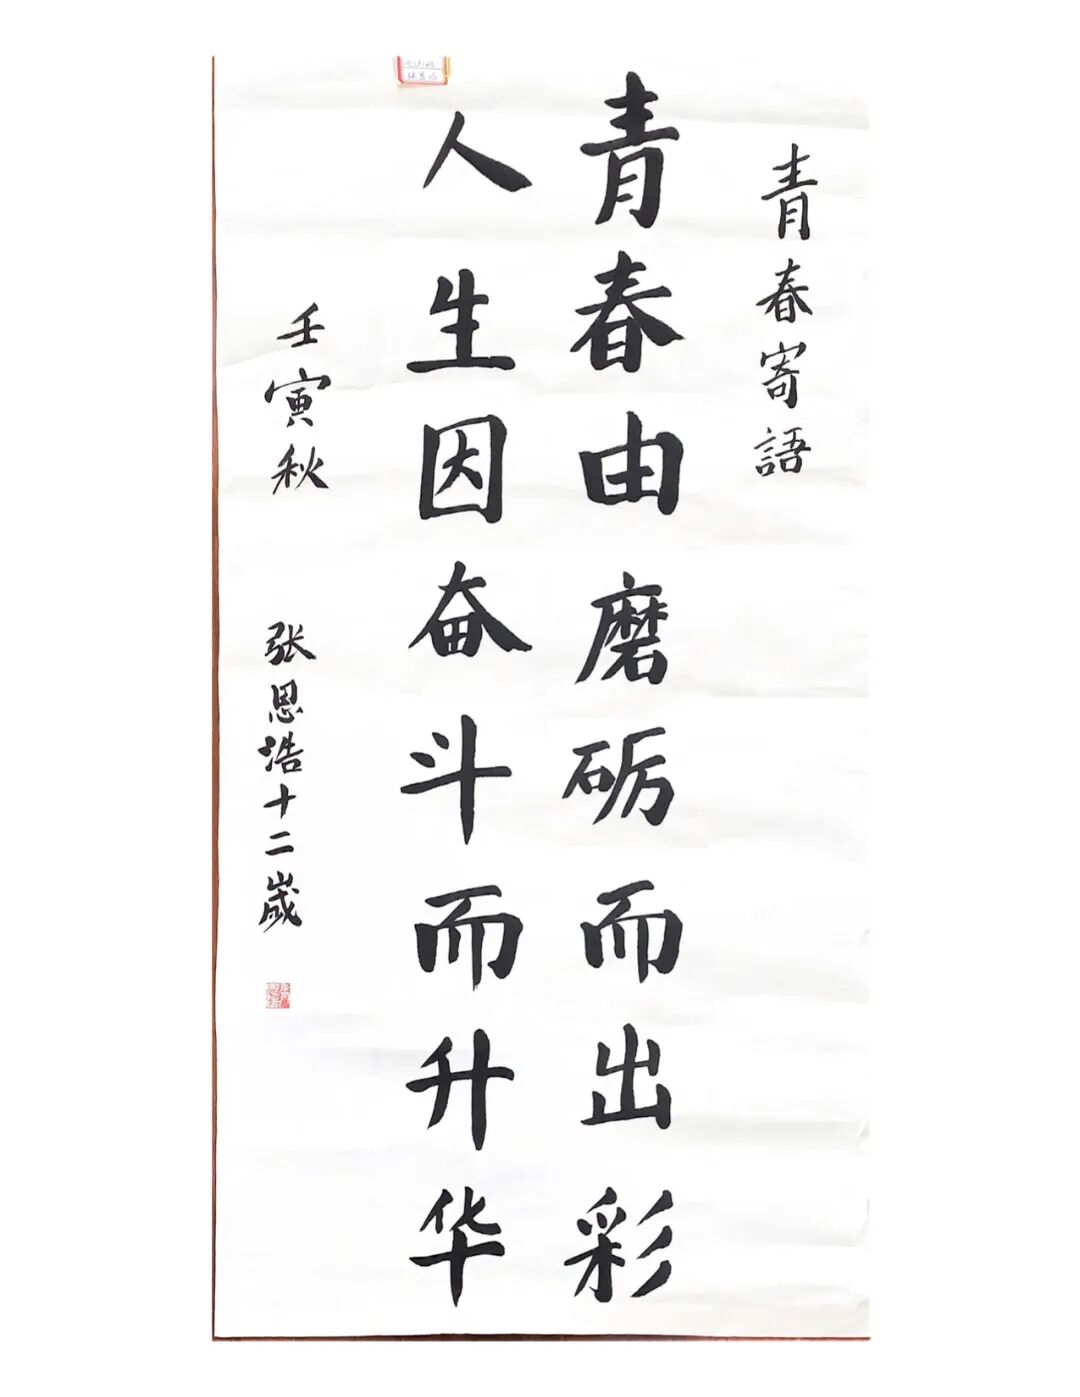 青春寄語
青春由磨砺而出彩
人生因奋斗而升华
壬寅秋
张恩浩十二歲